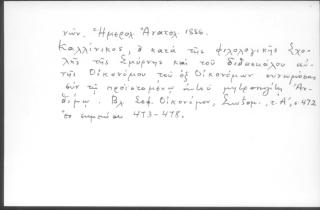 νών. Ἡμερολ. Ἀνατολ. 1886.
Καλλίνικος, ὁ κατὰ τῆς φιλολογικῆς Σχο-
λῆς τῆς Σμύρνης καὶ τοῦ διδασκάλου αὐ-
τῆς Οἰκονόμου τοῦ ἐξ Οἰκονόμων συνωμόσας
σὺν τῷ προϊσταμένῳ αὐτοῦ μητροπολίτῃ Ἀν-
θίμῳ. Βλ. Σοφ. Οἰκονόμου, Σωζομ., τ. Α', σ. 472
ἐν σημειώσει 473-478.